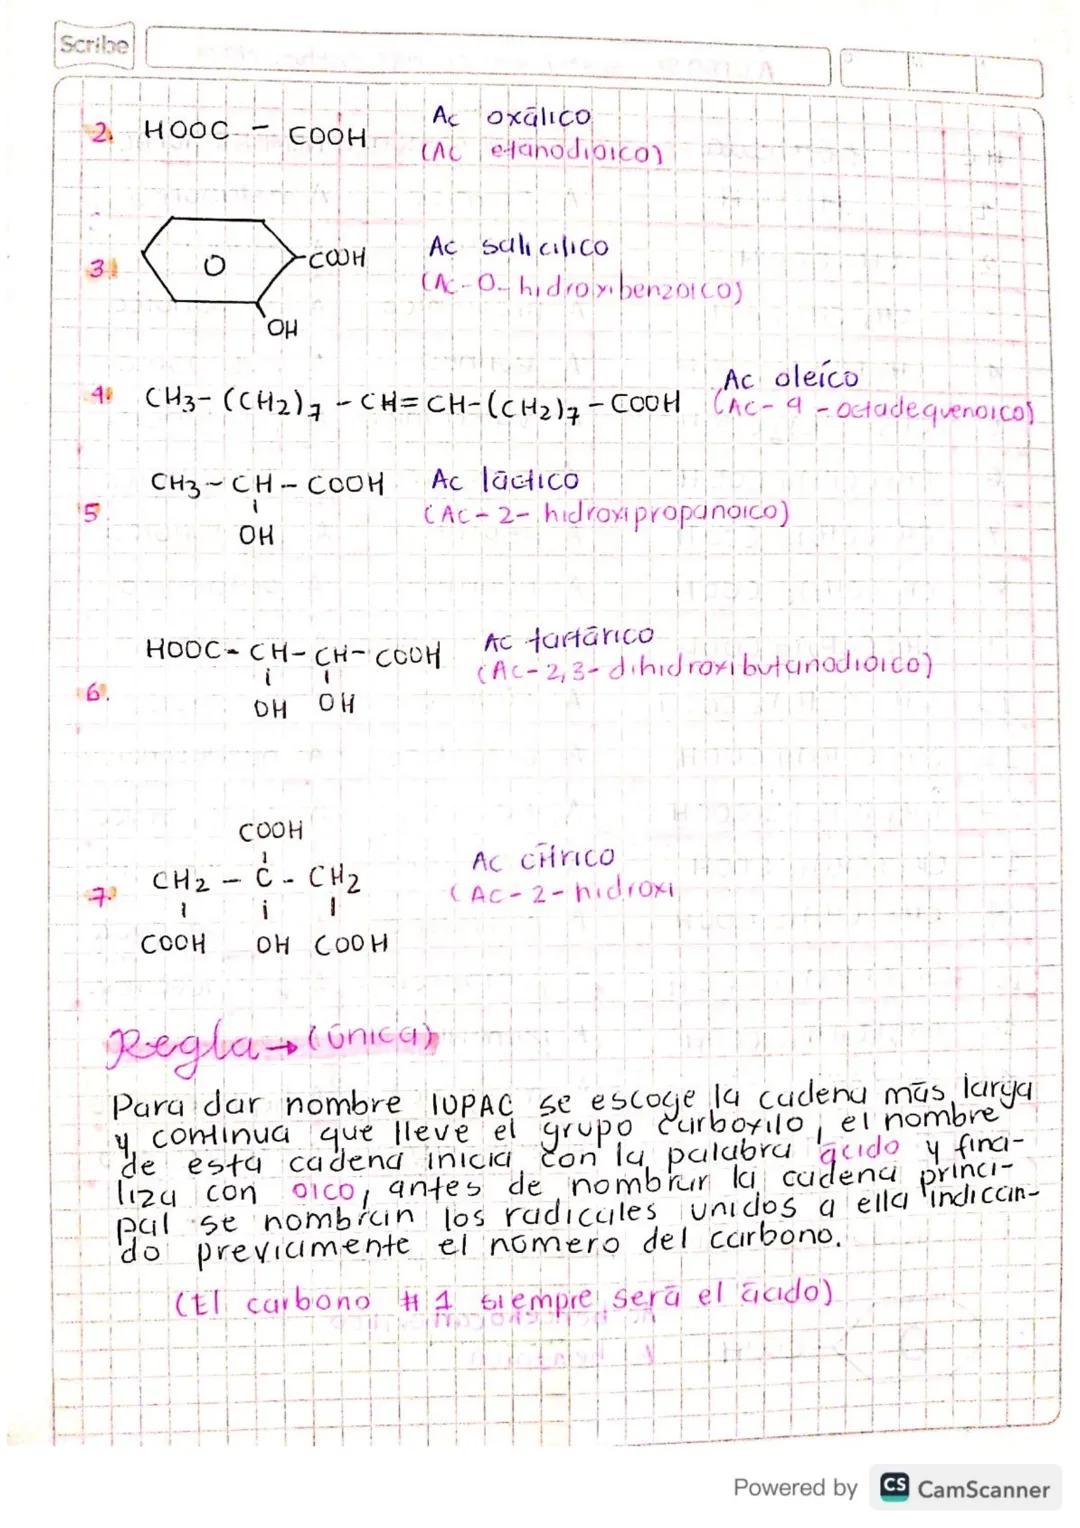 Scribe
2. HOOC - COOH Ac oxálico
(Ac etanodioico)
3. COOH Ac salicilico
(Ac-O-hidroxibenzoico)
OH
4. CH3-(CH2)7-CH=CH-(CH2)7-COOH Ac oleíco
(Ac-9-octadequenoico)
5. CH3-CH-COOH Ac láctico
(Ac-2-hidroxipropanoico)
OH
6. HOOC-CH-CH-COOH Ac tartárico
(Ac-2,3-dihidroxibutanodioico)
OH OH
COOH
7. CH2-C-CH2 Ac cítrico
(Ac-2-hidroxi
COOH OH COOH
Regla→(única)
Para dar nombre IUPAC se escoge la cadena más larga
y continua que lleve el grupo carboxilo, el nombre
de esta cadena inicia con la palabra ácido y fina-
liza con oico, antes de nombrar la cadena princi-
pal se nombran los radicales unidos a ella indican-
do previamente el número del carbono.
(El carbono #1 siempre será el ácido)
Powered by CS CamScanner